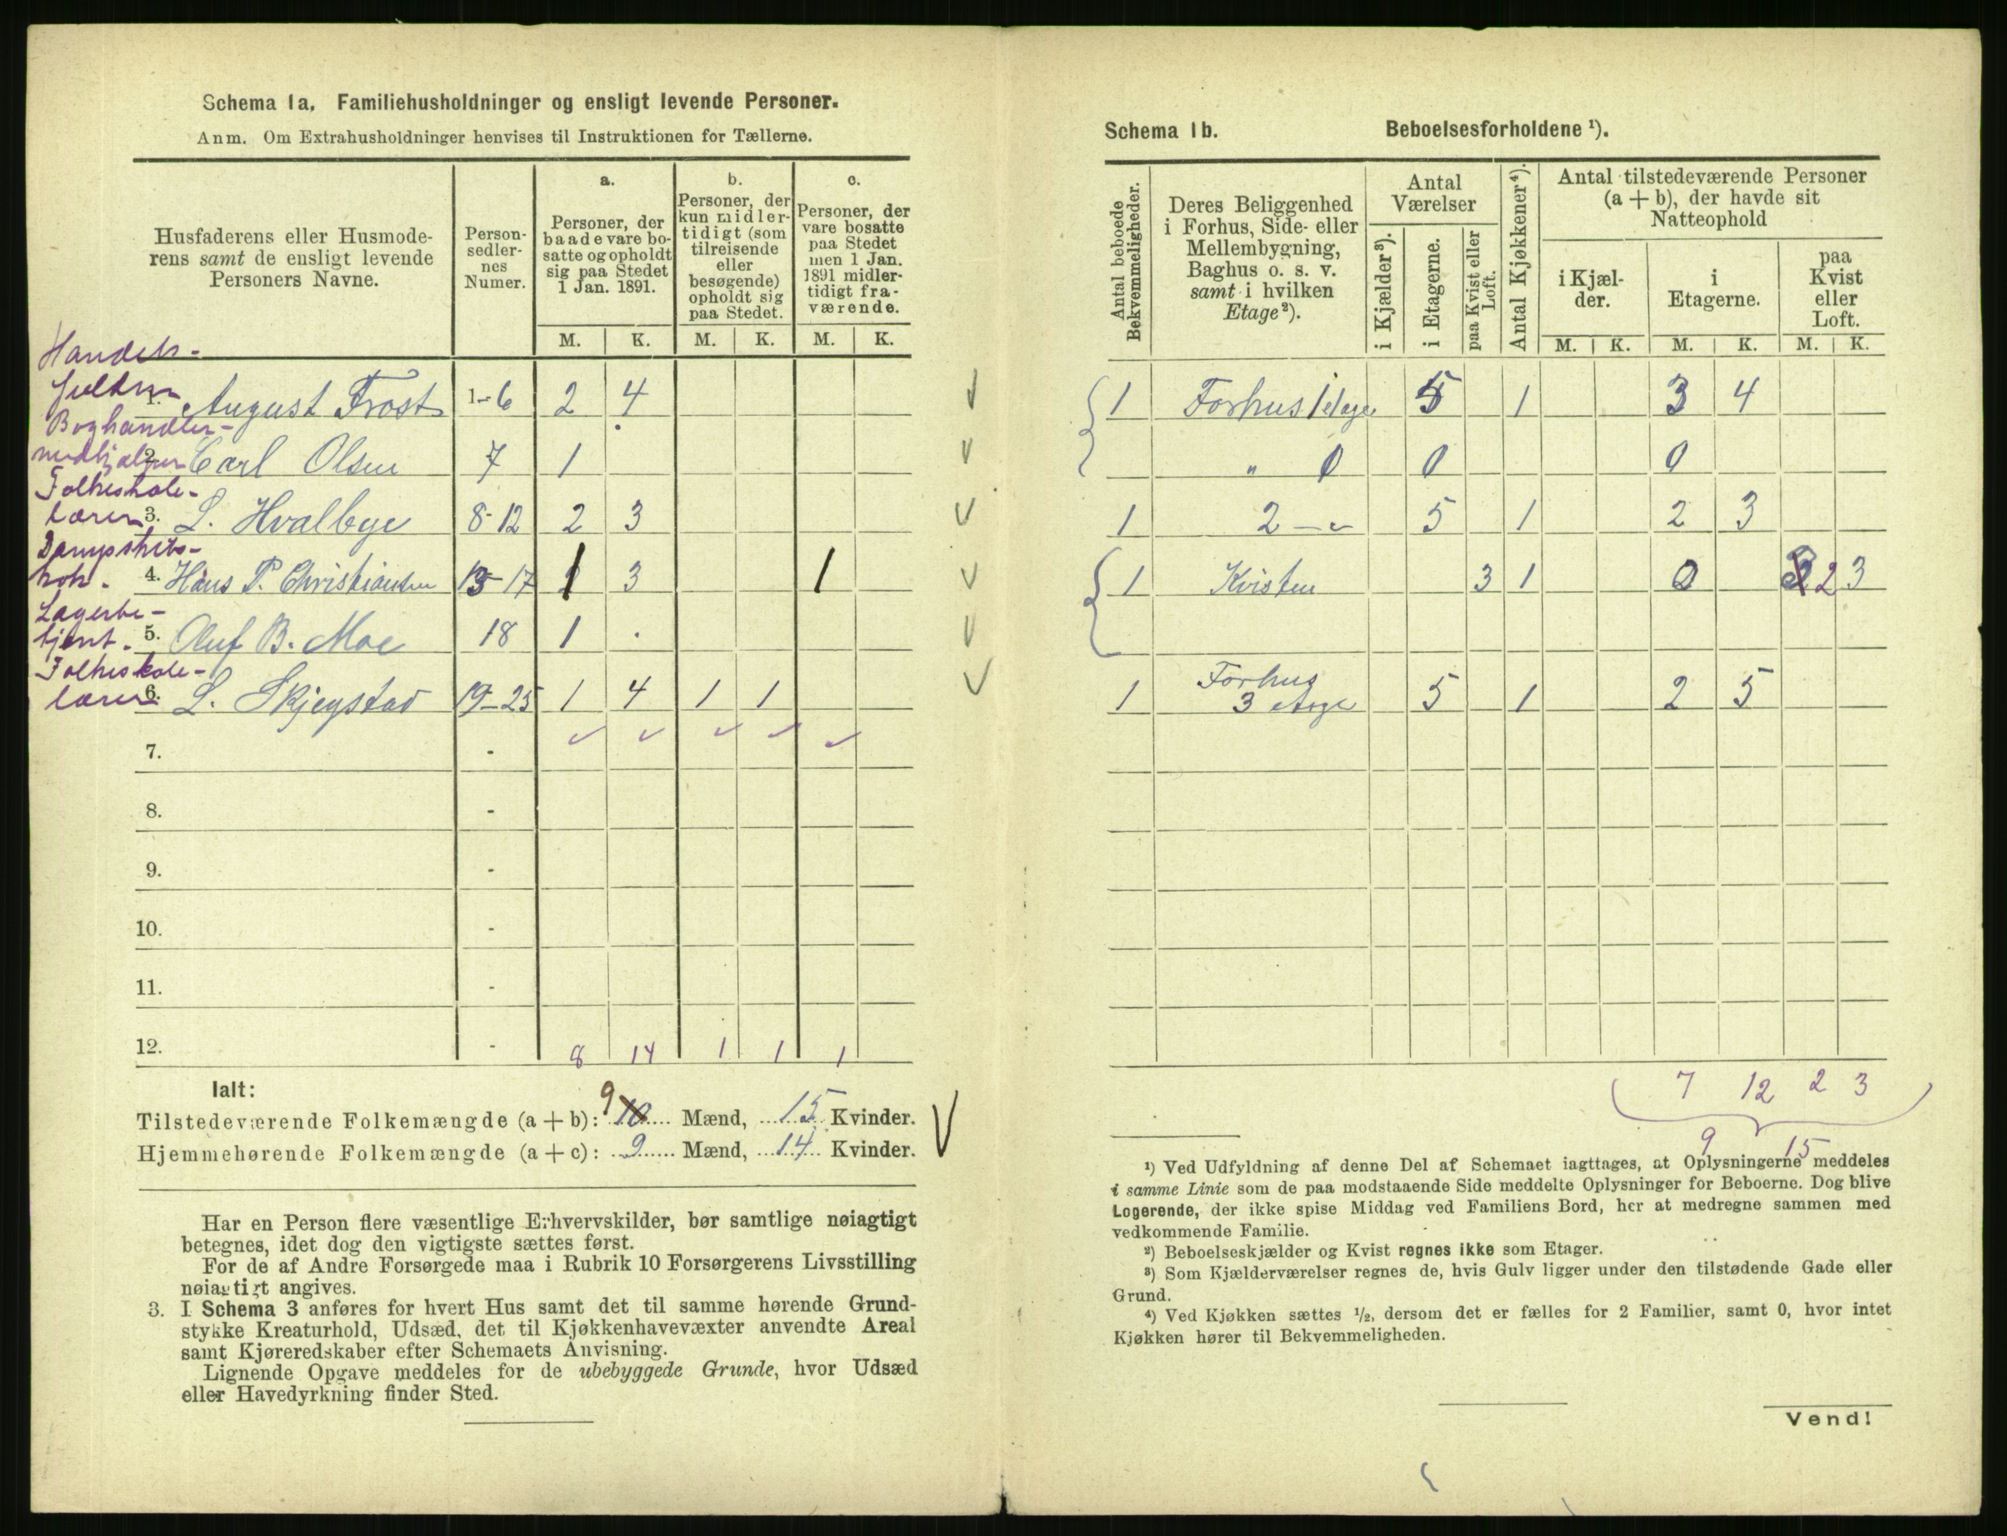 Schema 1a. Familiehusholdninger og ensligt levende Personer.
Anm. Om Extrahusholdninger henvises til Instruktionen for Tællerne.
Husfaderens eller Husmode-
rens samt de ensligt levende
Personers Navne.
Person-
sedler-
nes
Numer.
a.
Personer, der
baade vare bo-
satte og opholdt
sig paa Stedet
1 Jan. 1891.
b.
Personer, der
kun midler-
tidigt (som
tilreisende
eller
besøgende)
opholdt sig
paa Stedet.
c.
Personer, der
vare bosatte
paa Stedet
men 1 Jan.
1891 midler-
tidigt fra-
værende.
M. K. M. K. M. K.
Handels-
1. August Frost 1-6 2 4
Boghandler-
2. Carl Olsen 7 1
Folkeskole-
lærer 3. L. Hvalbye 8-12 2 3
Dampskibs-
4. Hans P. Christiansen 13-17 1 3 1
Lagerbe-
tjent. 5. Oluf B. Moe 18 1 .
Folkeskole-
lærer 6. L. Skjegstad 19-25 1 4 1 1
7. -
8. -
9. -
10. -
11. -
12. - 8 14 1 1 1
Ialt:
Tilstedeværende Folkemængde (a + b): 9 10 Mænd, 15 Kvinder.
Hjemmehørende Folkemængde (a + c): 9 Mænd, 14 Kvinder.
Har en Person flere væsentlige Erhvervskilder, bør samtlige nøiagtigt
betegnes, idet dog den vigtigste sættes først.
For de af Andre Forsørgede maa i Rubrik 10 Forsørgerens Livsstilling
nøiagtigt angives.
3. I Schema 3 anføres for hvert Hus samt det til samme hørende Grund-
stykke Kreaturhold, Udsæd, det til Kjøkkenhavevæxter anvendte Areal
samt Kjøreredskaber efter Schemaets Anvisning.
Lignende Opgave meddeles for de ubebyggede Grunde, hvor Udsæd
eller Havedyrkning finder Sted.
Schema 1b. Beboelsesforholdene ¹).
Antal beboede
Bekvemmeligheder.
Deres Beliggenhed
i Forhus, Side- eller
Mellembygning,
Baghus o. s. v.
samt i hvilken
Etage²).
Antal
Værelser
i Kjælder³).
i Etagerne.
paa Kvist eller
Loft.
Antal Kjøkkener⁴).
Antal tilstedeværende Personer
(a + b), der havde sit
Natteophold
i Kjæl-
der.
i
Etagerne.
paa
Kvist
eller
Loft.
M. K. M. K. M. K.
1 Forhus 1 etage 5 1 3 4
" 0 0 0
1 2 - " - 5 1 2 3
1 Kvisten 3 1 0 3 2 3
1 Forhus
3 etage 5 1 2 5
7 12 2 3
9 15
¹) Ved Udfyldning af denne Del af Schemaet iagttages, at Oplysningerne meddeles
i samme Linie som de paa modstaaende Side meddelte Oplysninger for Beboerne. Dog blive
Logerende, der ikke spise Middag ved Familiens Bord, her at medregne sammen med
vedkommende Familie.
²) Beboelseskjælder og Kvist regnes ikke som Etager.
³) Som Kjælderværelser regnes de, hvis Gulv ligger under den tilstødende Gade eller
Grund.
⁴) Ved Kjøkken sættes ½, dersom det er fælles for 2 Familier, samt 0, hvor intet
Kjøkken hører til Bekvemmeligheden.
Vend!